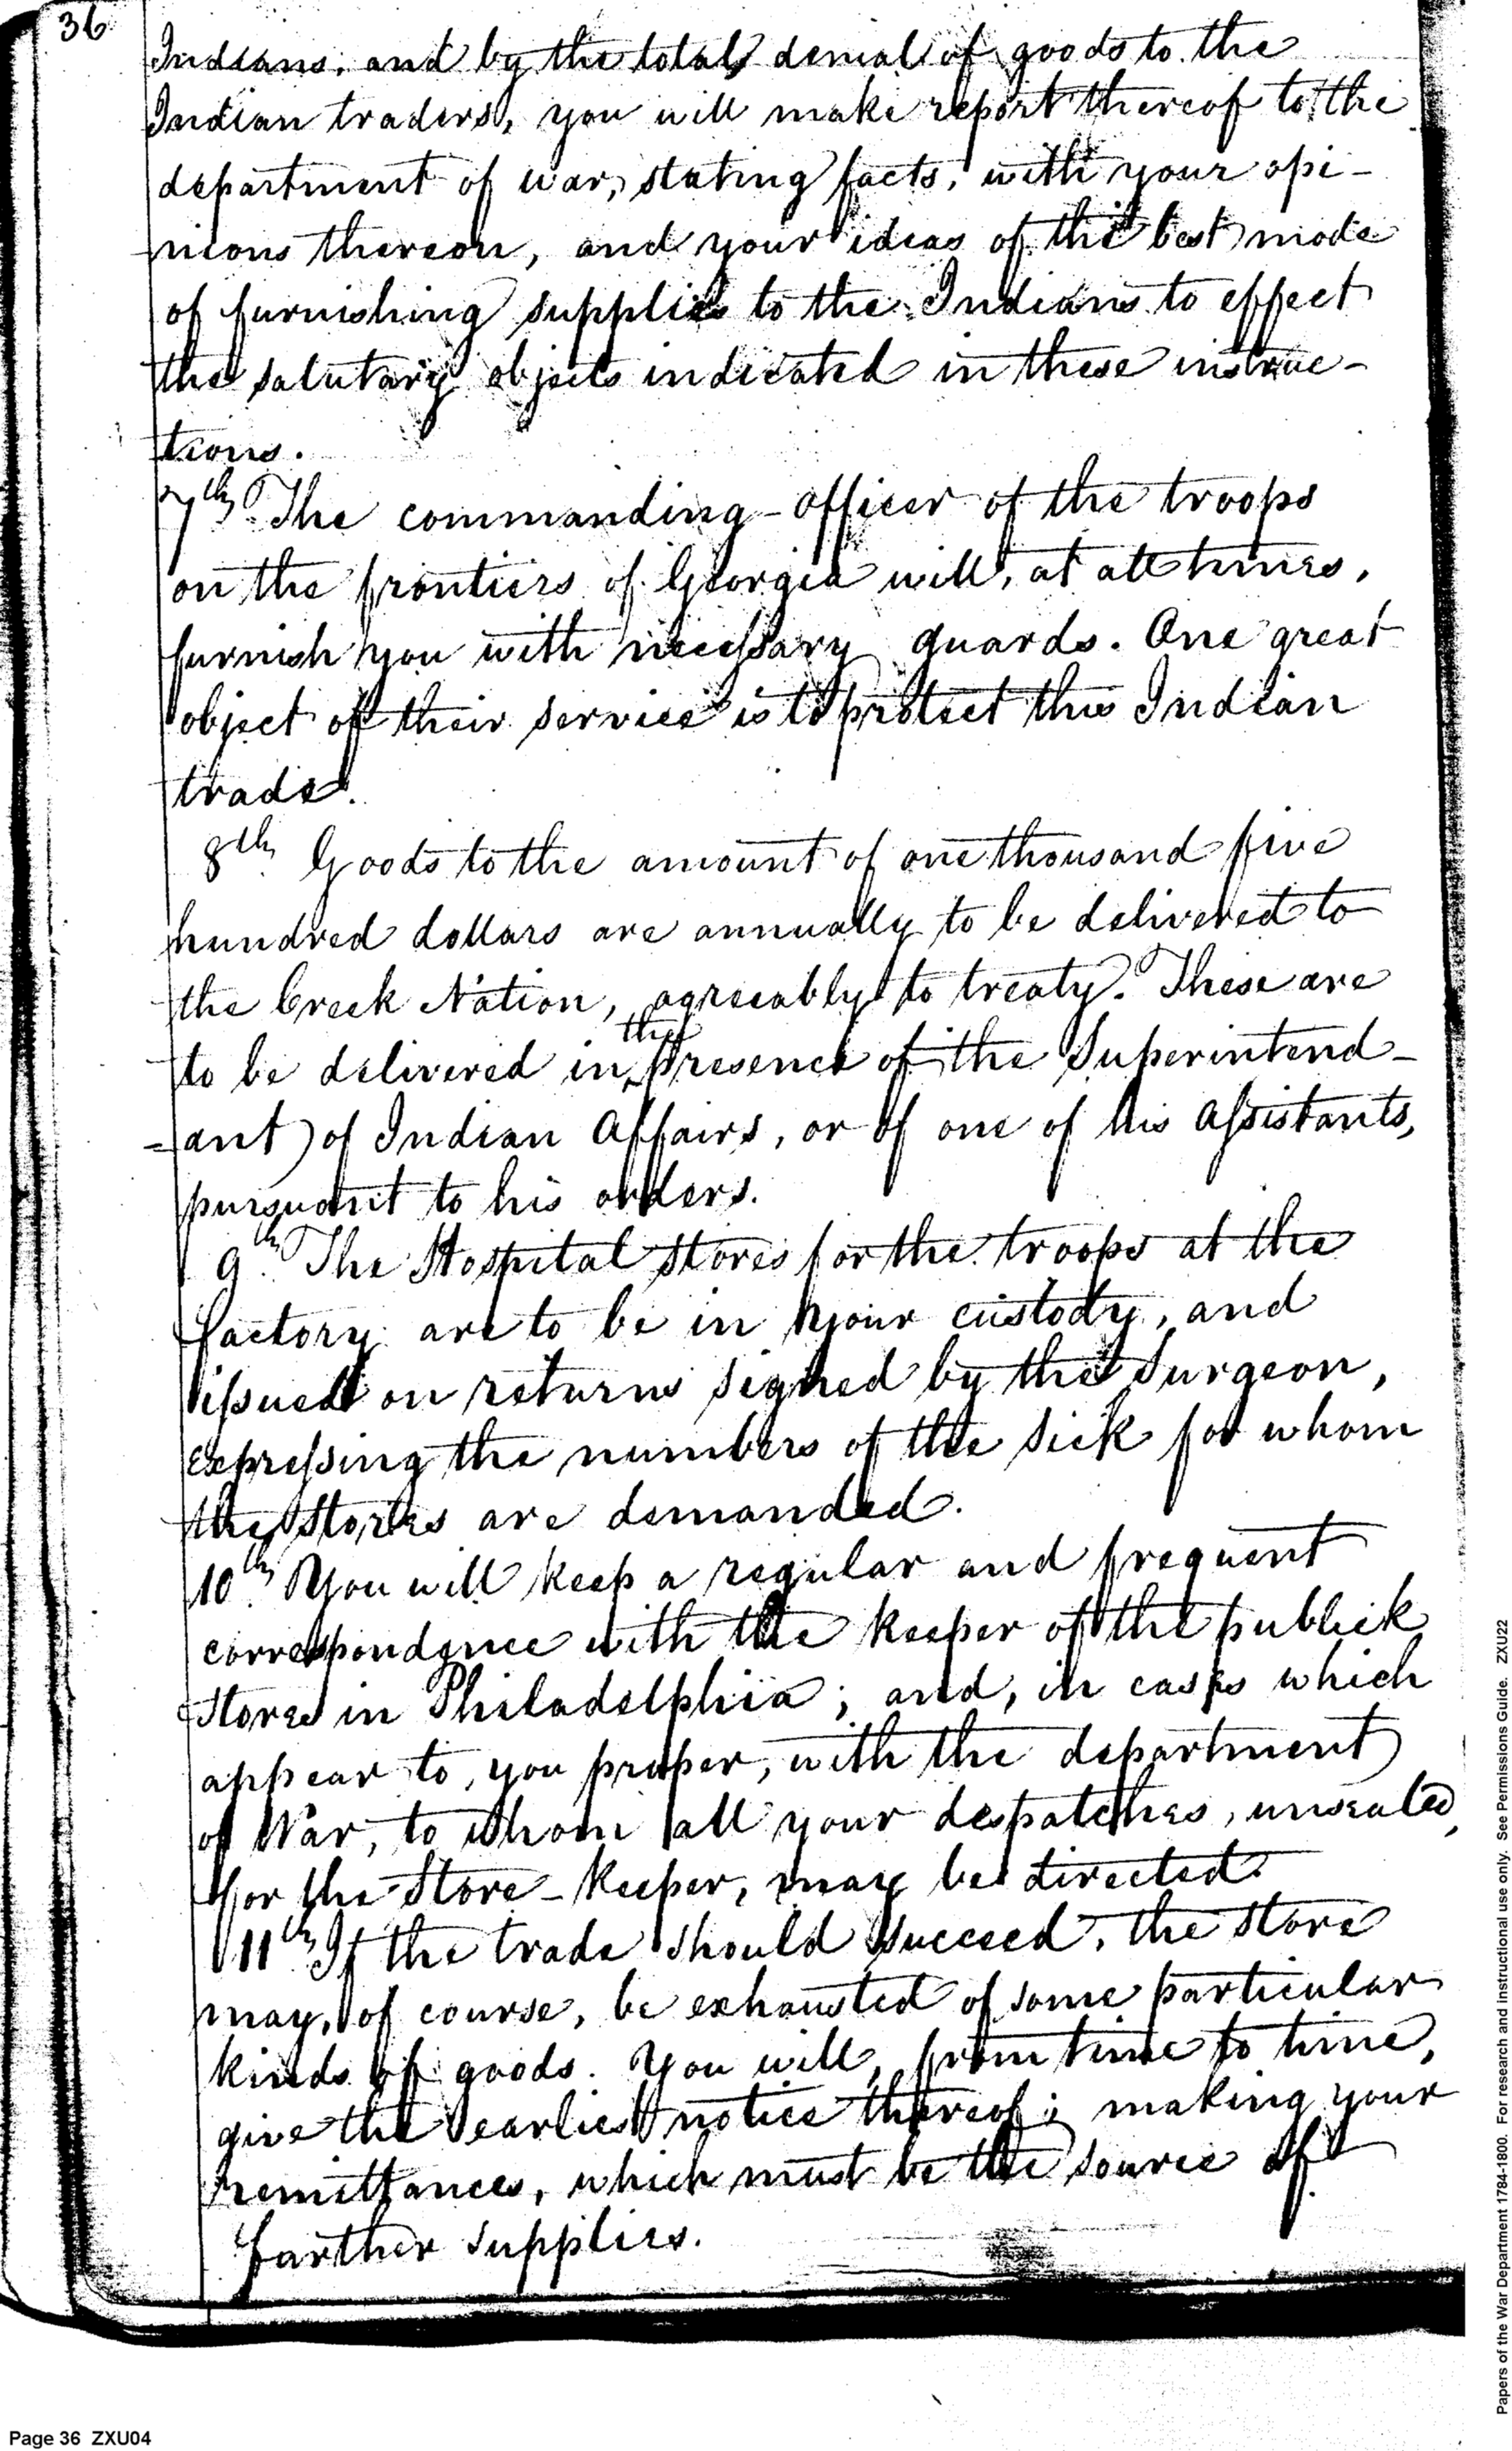 36
Indians, and by the total denial of goods to the
Indian traders, you will make report thereof to the
department of war, stating facts, with your opi-
nions thereon, and your ideas of the best mode
of furnishing supplies to the Indians to effect
the salutary objects indicated in these instruc-
tions.
7th. The commanding-officer of the troops
on the frontiers of Georgia will, at all times,
furnish you with necessary guards. One great
object of their service is to protect this Indian
trade.
8th. Goods to the amount of one thousand five
hundred dollars are annually to be delivered to
the Creek Nation, agreeably to treaty. These are
to be delivered in the presence of the Superintend-
-ant of Indian Affairs, or of one of his Assistants,
pursuant to his orders.
9th. The Hospital Stores for the troops at the
factory are to be in your custody, and
issued on returns signed by the Surgeon,
expressing the numbers of the sick for whom
the Stores are demanded.
10th. You will keep a regular and frequent
correspondence with the keeper of the publick
Stores in Philadelphia; and, in cases which
appear to you proper, with the department
of War, to whom all your despatches, unsealed,
for the Store-keeper, may be directed.
11th. If the trade should succeed, the store
may, of course, be exhausted of some particular
kinds of goods. You will, from time to time,
give the earliest notice thereof; making your
remittances, which must be the source of
farther supplies.
Page 36 ZXU04
Papers of the War Department 1784-1800. For research and instructional use only. See Permissions Guide. ZXU22